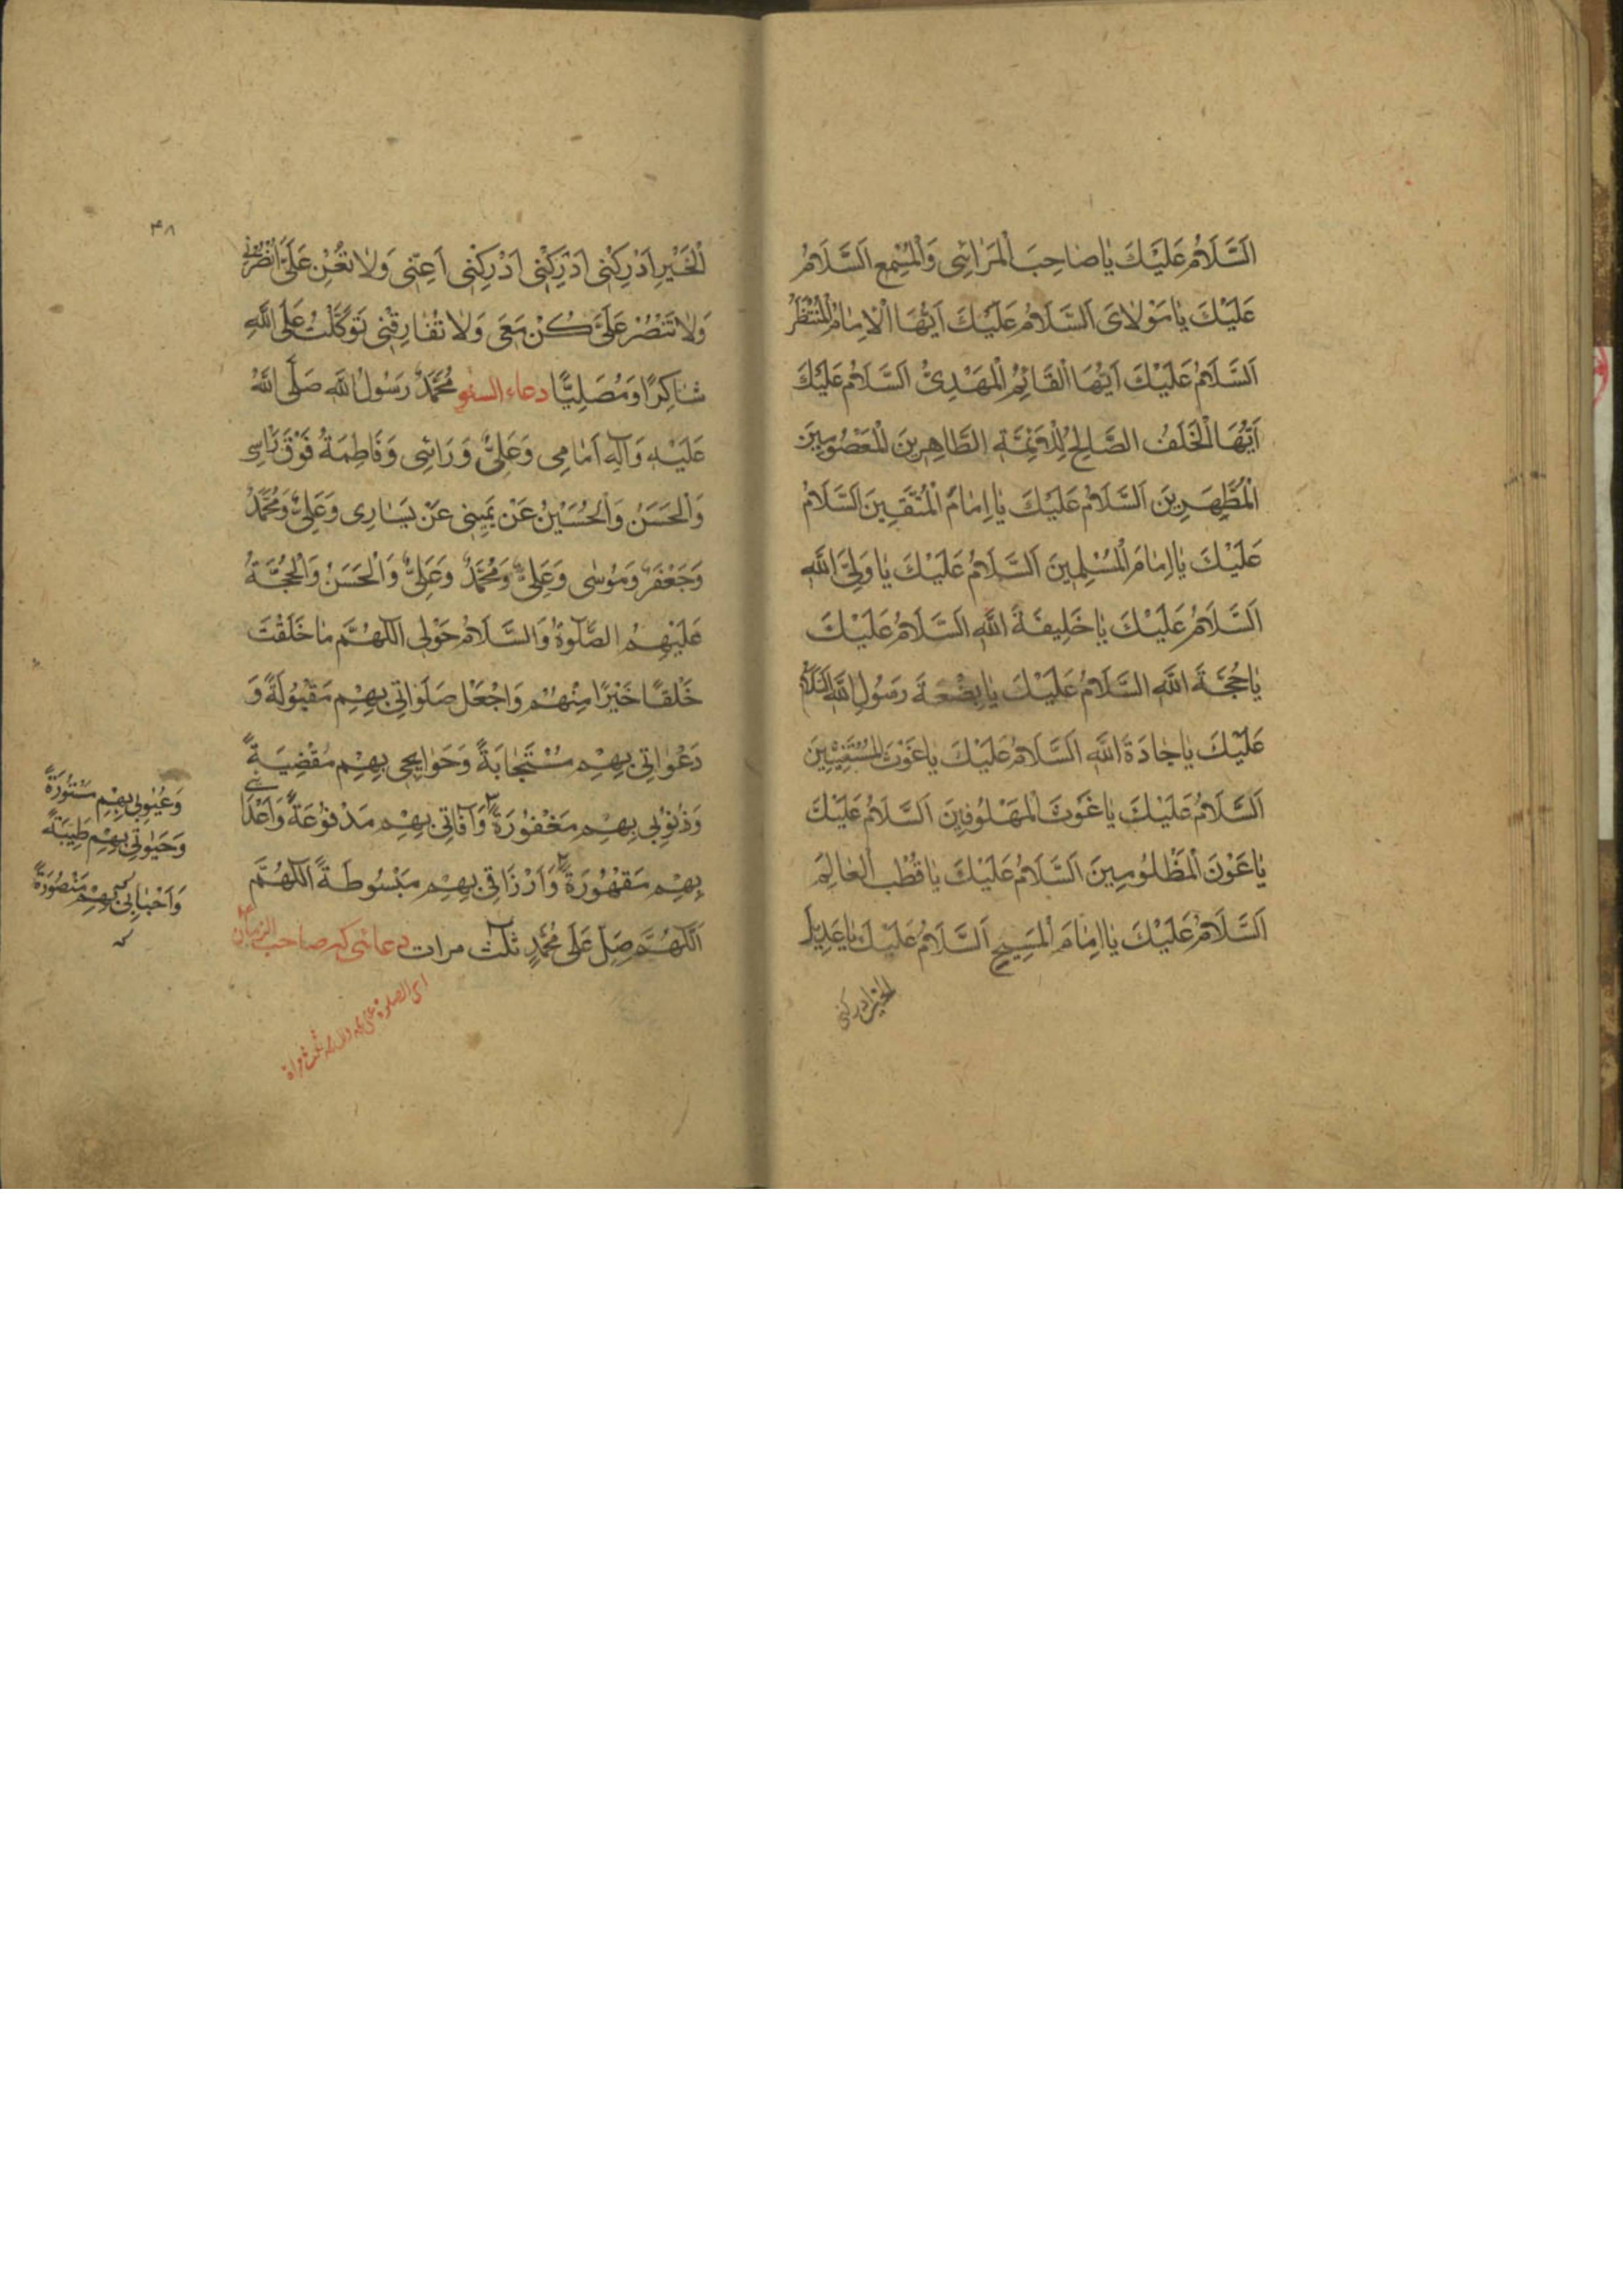 اَلسَّلَامُ عَلَيْكَ يَا صَاحِبَ الْمَرَائِى وَالْمُسْمِعِ اَلسَّلَامُ
عَلَيْكَ يَا مَوْلَاىَ اَلسَّلَامُ عَلَيْكَ اَيُّهَا الْاِمَامُ الْمُنْتَظَرُ
اَلسَّلَامُ عَلَيْكَ اَيُّهَا الْقَائِمُ الْمَهْدِىُّ اَلسَّلَامُ عَلَيْكَ
اَيُّهَا الْخَلَفُ الصَّالِحُ لِلْاَئِمَّةِ الطَّاهِرِينَ الْمَعْصُومِينَ
الْمُطَهَّرِينَ اَلسَّلَامُ عَلَيْكَ يَا اِمَامَ الْمُتَّقِينَ اَلسَّلَامُ
عَلَيْكَ يَا اِمَامَ الْمُسْلِمِينَ اَلسَّلَامُ عَلَيْكَ يَا وَلِىَّ اللّٰهِ
اَلسَّلَامُ عَلَيْكَ يَا خَلِيفَةَ اللّٰهِ اَلسَّلَامُ عَلَيْكَ
يَا حُجَّةَ اللّٰهِ اَلسَّلَامُ عَلَيْكَ يَا بِضْعَةَ رَسُولِ اللّٰهِ اَلسَّلَامُ
عَلَيْكَ يَا جَادَةَ اللّٰهِ اَلسَّلَامُ عَلَيْكَ يَا غَوْثَ الْمُسْتَغِيثِينَ
اَلسَّلَامُ عَلَيْكَ يَا غَوْثَ الْمَهْلُوفِينَ اَلسَّلَامُ عَلَيْكَ
يَا عَوْنَ الْمَظْلُومِينَ اَلسَّلَامُ عَلَيْكَ يَا قُطْبَ الْعَالَمِ
اَلسَّلَامُ عَلَيْكَ يَا اِمَامَ الْمَسِيحِ اَلسَّلَامُ عَلَيْكَ يَا عَدِيلَ
الخير ادركنى
۴۸
الْخَيْرِ اَدْرِكْنِى اَدْرِكْنِى اَدْرِكْنِى اَعِنِّى وَلَا تُعِنْ عَلَىَّ اُنْصُرْنِى
وَلَا تَنْصُرْ عَلَىَّ كُنْ مَعِى وَلَا تُفَارِقْنِى تَوَكَّلْتُ عَلَى اللّٰهِ
شَاكِرًا وَمُصَلِّيًا دعاء السفر مُحَمَّدٌ رَسُولُ اللّٰهِ صَلَّى اللّٰهُ
عَلَيْهِ وَآلِهِ اَمَامِى وَعَلِىٌّ وَرَائِى وَفَاطِمَةُ فَوْقَ رَاْسِى
وَالْحَسَنُ وَالْحُسَيْنُ عَنْ يَمِينِى عَنْ يَسَارِى وَعَلِىٌّ وَمُحَمَّدٌ
وَجَعْفَرٌ وَمُوسٰى وَعَلِىٌّ وَمُحَمَّدٌ وَعَلِىٌّ وَالْحَسَنُ وَالْحُجَّةُ
عَلَيْهِمُ الصَّلٰوةُ وَالسَّلَامُ حَوْلِى اَللّٰهُمَّ مَا خَلَقْتَ
خَلْقًا خَيْرًا مِنْهُمْ وَاجْعَلْ صَلَوَاتِى بِهِمْ مَقْبُولَةً وَ
دَعْوَاتِى بِهِمْ مُسْتَجَابَةً وَحَوَايِجِى بِهِمْ مُقْضِيَةً
وَذُنُوبِى بِهِمْ مَغْفُورَةً وَآفَاتِى بِهِمْ مَدْفُوعَةً وَاَعْدَائِى
بِهِمْ مَقْهُورَةً وَاَرْزَاقِى بِهِمْ مَبْسُوطَةً اَللّٰهُمَّ
اَللّٰهُمَّ صَلِّ عَلَى مُحَمَّدٍ ثلث مرات صاحب الزمان
وَعُيُوبِى بِهِمْ مَسْتُورَةً
وَحَيٰوتِى بِهِمْ طَيِّبَةً
وَاَحْبَابِى بِهِمْ مَنْصُورَةً